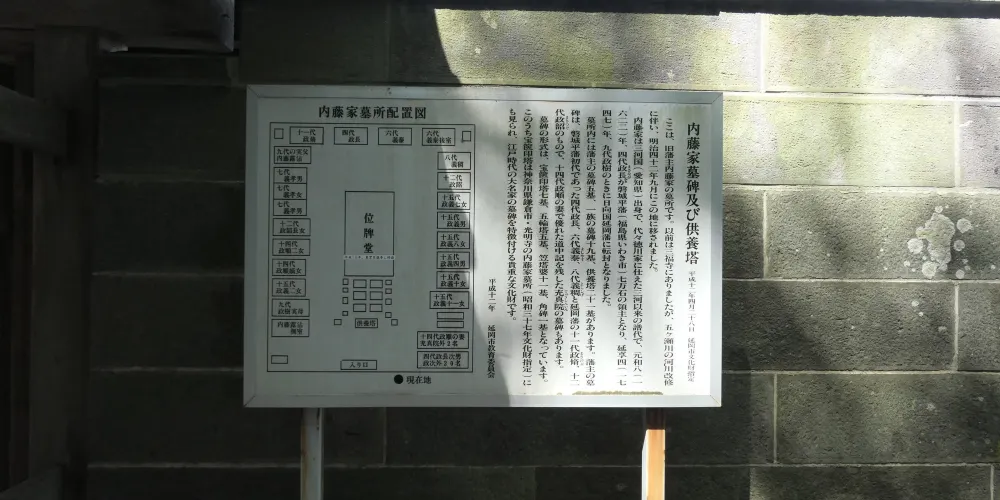 内藤家墓碑及び供養塔
平成十二年四月二十八日 延岡市文化財指定
ここは、旧藩主内藤家の墓所です。以前は三福寺にありましたが、五ヶ瀬川の河川改修
に伴い、明治四十二年九月にこの地に移されました。
内藤家は三河国（愛知県）出身で、代々徳川家に仕えた三河以来の譜代で、元和八（一
六二二）年、四代政長が磐城平藩（福島県いわき市）七万石の領主となり、延享四（一七
四七）年、九代政樹のときに日向国延岡藩に転封となりました。
墓所内には藩主の墓碑五基、一族の墓碑十九基、供養塔二十一基があります。藩主の墓
碑は、磐城平藩初代であった四代政長、六代義泰、八代義稠と延岡藩の十一代政脩、十二
代政韶のもので、十四代政順の妻で優れた道中記を残した充真院の墓碑もあります。
墓碑の形式は、宝篋印塔七基、五輪塔五基、笠塔婆十一基、角碑一基となっています。
このうち宝篋印塔は神奈川県鎌倉市・光明寺の内藤家墓所（昭和三十七年文化財指定）に
も見られ、江戸時代の大名家の墓碑を特徴付ける貴重な文化財です。
平成十二年 延岡市教育委員会
内藤家墓所配置図
十一代
政脩
四代
政長
六代
義泰
六代
義泰後室
九代の実兄
内藤露沾
七代
義孝男
七代
義孝女
七代
義孝男
十二代
政韶長女
十四代
政順二女
十四代
政順嫡女
十五代
政義二女
九代
政樹実母
内藤露沾
側室
八代
義稠
十二代
政韶
十五代
政義七女
十五代
政義男
十五代
政義八女
十五代
政義四男
十五代
政義十女
十五代
政義十一女
十四代政順の妻
充真院外２名
四代政長次男
政次外２０名
位牌堂
供養塔
入り口
●現在地